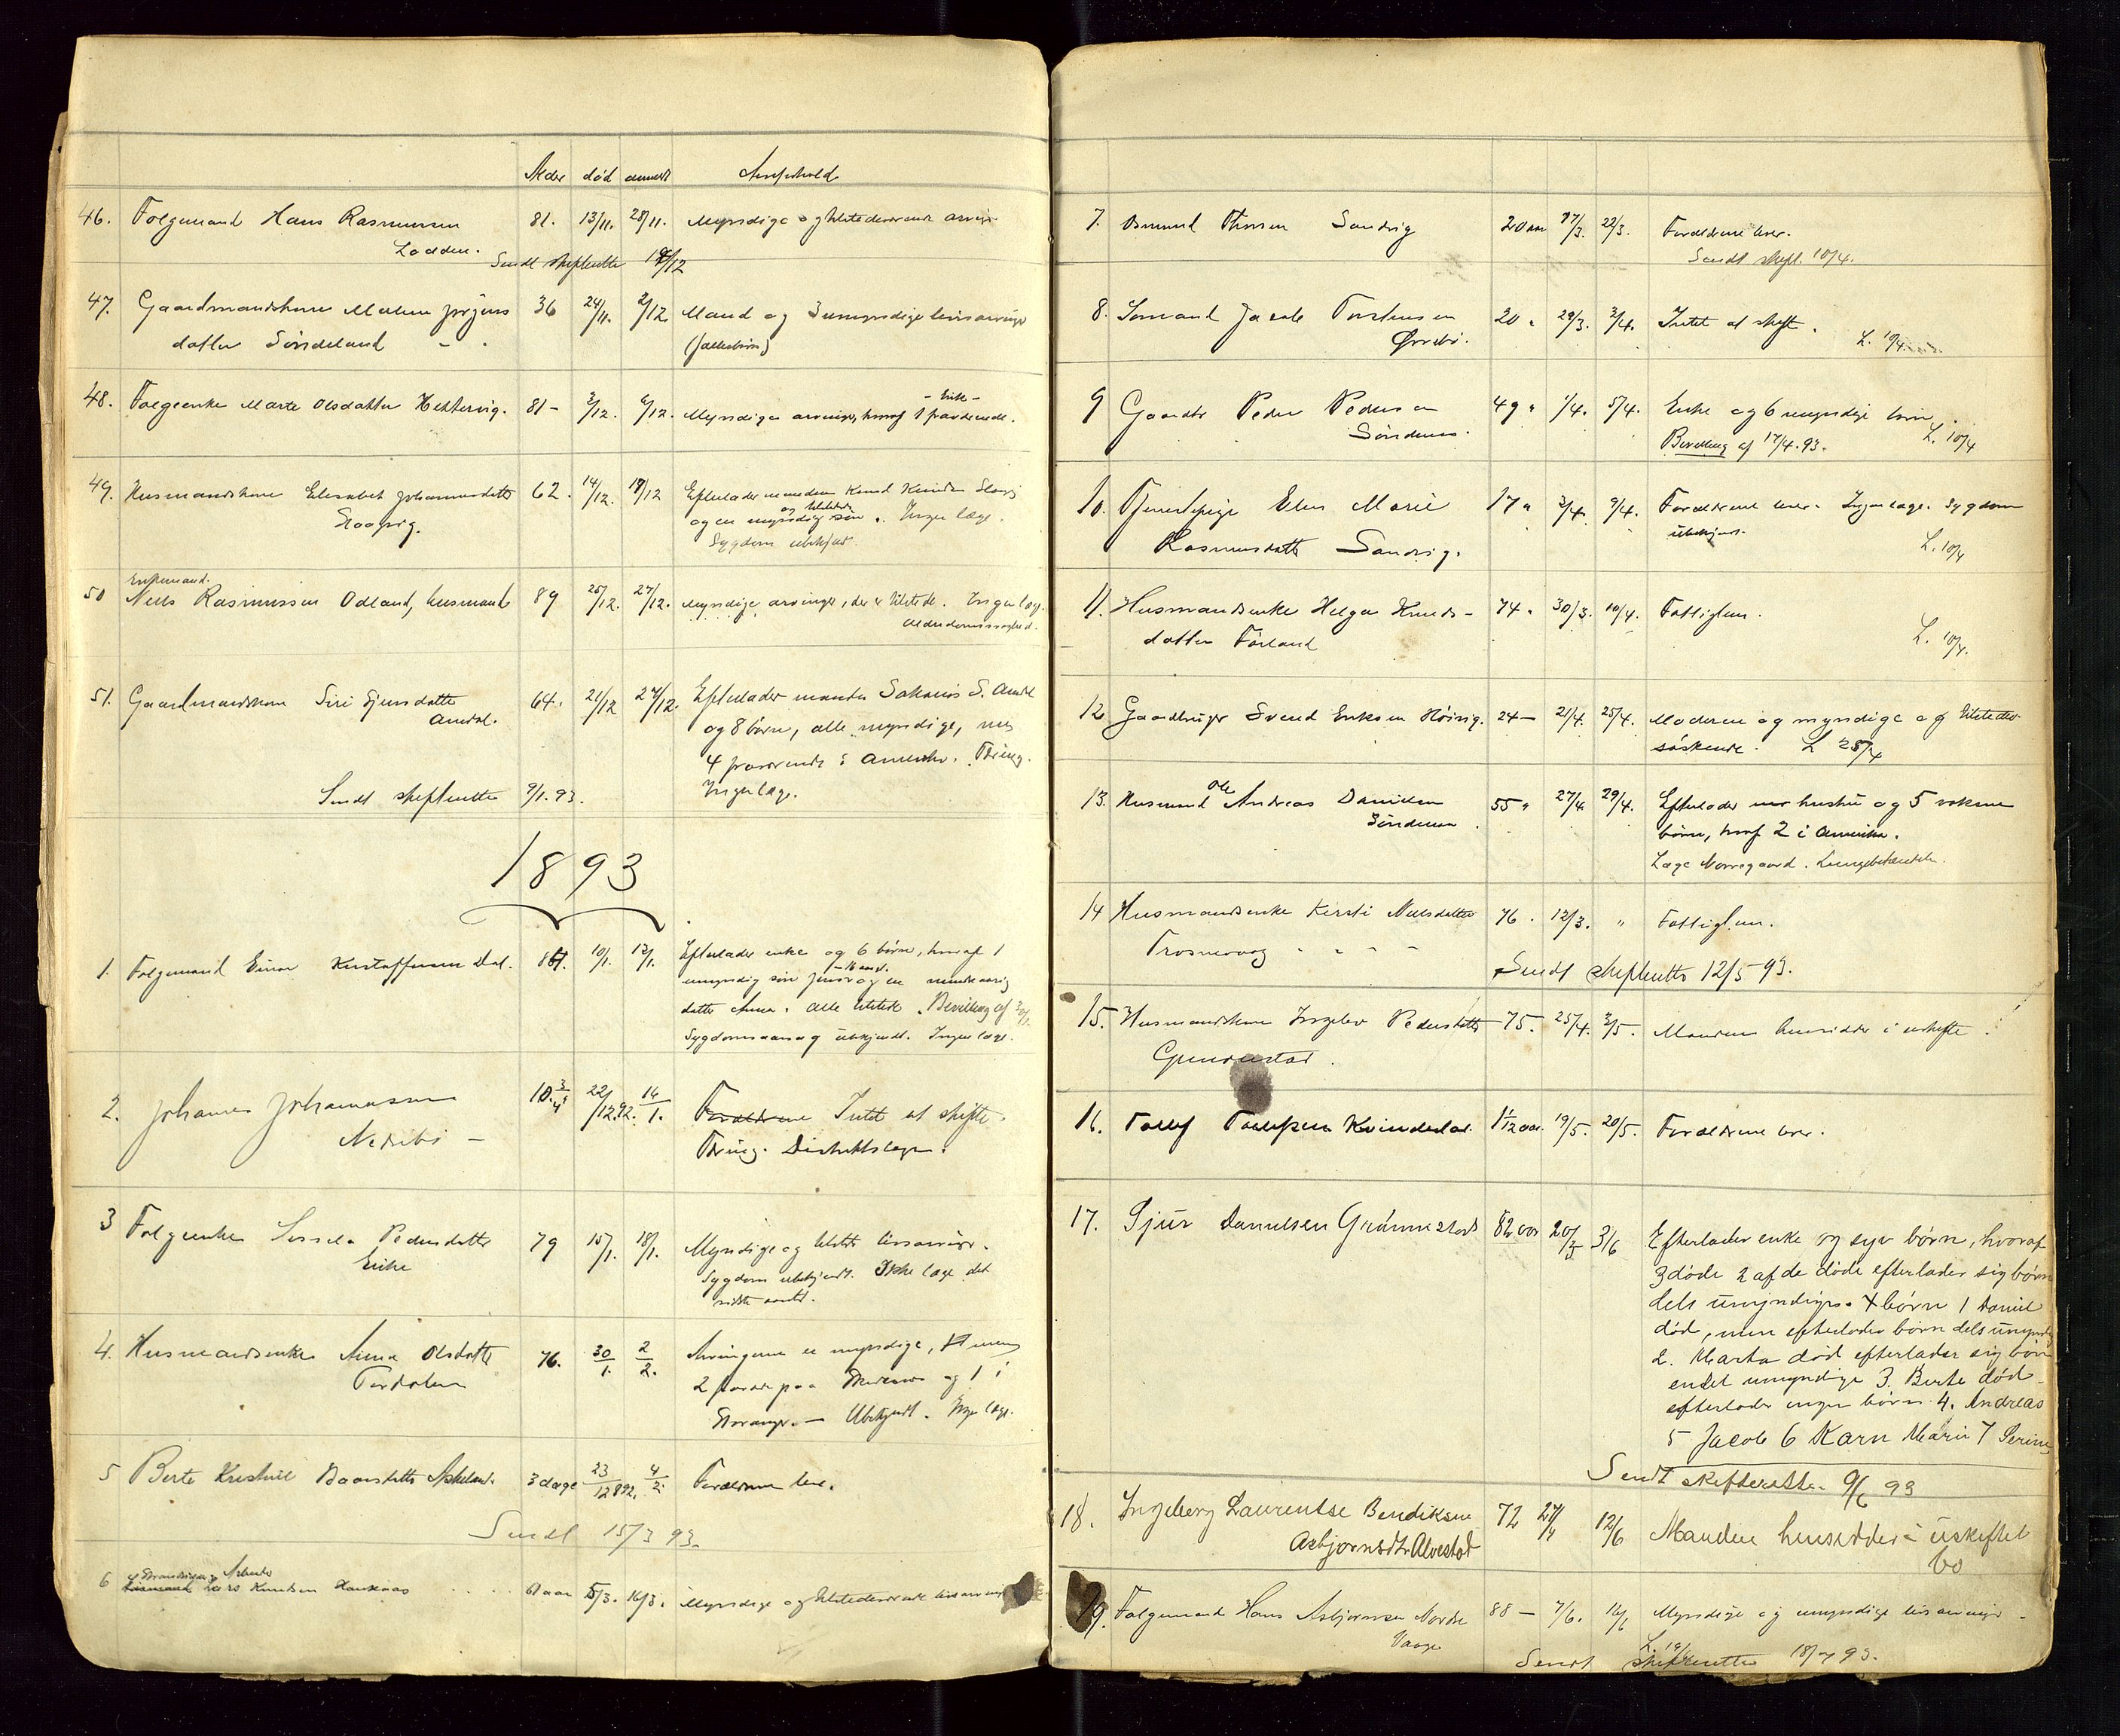 Alder død anmeldt
46. Folgemand Hans Rasmussen 81. 13/11. 28/11. Myndige og tilstedeværende arvinger
Lodden.
Sendt skifteretten 12/12
47. Gaardmandskone Malene Jørgens 36 24/11. 2/12. Mand og 3 umyndige livsarvinger
datter Sørdeland (fællesbørn)
48. Folgeenke Marte Olsdatter Hettervig. 81 - 3/12. 6/12. Myndige arvinger, hvoraf 1 fraværende.
- Enke -
49. Husmandskone Elisabet Johannesdatter 62. 14/12. 17/12 Efterlader manden Knud Knudsen
og en myndig og tilstede søn. Ingen læge.
Sygdom ubekjendt.
Enkemand.
50 Niels Rasmussen Odland, husmand 89 25/12. 27/12. Myndige arvinger, der er tilstede. Ingen læge.
Alderdomssvaghed.
51. Gaardmandskone Siri Sjursdatter 64. 21/12 27/12. Efterlader manden Sakarias S. Amdal
Amdal. og 8 børn, alle myndige, men
4 fraværende i Amerika. Tæring.
Sendt skifteretten 9/1. 93. Ingen læge.
1893
1. Folgemand Einar Kristoffersen Dal. 10/1. 12/1. Efterlader enke og 6 børn, hvoraf 1
umyndig søn og en mindreaarig
datter Anna. Alle tilstede. Bevilling af
Sygdomsaarsag ubekjendt. Ingen læge.
2. Johannes Johannessen 10 3/4 22/12.92. 14/1. Forældrene Intet at skifte.
Nedrebø - Tæring. Distriktslægen.
3 Folgeenke Sissela Pedersdatter 79 15/1. 18/1. Myndige og tilstede livsarvinger.
Eike Sygdom ubekjendt. Ikke læge det
sidste aaret.
4. Husmandsenke Anna Olsdatter 76. 30/1. 2/2. Arvingerne er myndige, men
2 og 1 i
Stavanger. - Ubekjendt. Ingen læge.
5 Berte Kristine Baardsdatter 3 dage 23/12 892. 4/2. Forældrene lever.
Sendt 15/3 93.
6 Lars Knudsen 16/3. Myndige og tilstedeværende livsarvinger
7. Osmund Sandvig 20 aar 17/3. 22/3. Forældrene lever.
Sendt skift. 10/4.
8. Sømand Jacob Torstensen 20 " 29/3. 2/4. Intet at skifte.
Øvrebø. L. 10/4.
9 Gaardbr Peder Pedersen 49 " 1/4. 5/4. Enke og 6 umyndige børn.
Bevilling af 17/4. 93. L. 10/4
10. Tjenestepige Elen Marie 17 " 3/4. 9/4. Forældrene lever. Ingen læge. Sygdom
ubekjendt.
Rasmusdatter Sandvig. L. 10/4
11. Husmandsenke Helga Knuds- 74 " 30/3. 10/4. Fattiglem.
datter Førland L. 10/4.
12 Gaardbruger Svend Eriksen Høivig. 24 - 21/4. 25/4. Moderen og myndige og tilstedev
søskende. L 25/4
13. Husmand Ole Andreas Danielsen 55 " 27/4 29/4. Efterlader hustru og 5 voksne
børn, hvoraf 2 i Amerika.
Læge Norregaard. Lungebetændelse.
14 Husmandsenke Kirsti Nielsdatter 76. 12/3. " Fattiglem.
Trosnavaag
Sendt skifteretten 12/5 93.
15. Husmandskone Ingebor Pedersdatter 75. 25/4. 3/5. Manden hensidder i uskifte.
16. Tollef Tollefsen Kvinderdal. 1 1/12 aar. 19/5. 20/5. Forældrene lever.
17. Sjur Danielsen Grønnestad 82 aar 20/5 3/6 Efterlader enke og syv børn, hvoraf
3 døde 2 af de døde efterlader sig børn
dels umyndige. 7 børn 1 Daniel
død, men efterlader børn dels umyndig
2. Marta død efterlader sig børn
endel umyndige 3. Berte død
efterlader ingen børn. 4. Andreas
5 Jacob 6 Karn Marie 7 Serine
Sendt skifteretten 9/6 93
18. Ingeborg Laurentse Bendiksen 72 27/4 12/6 Manden hensidder i uskiftet
Asbjørnsdtr. Alvestad bo
19. Folgemand Hans Asbjørnsen Nordre 88 - 7/6. 14/6 Myndige og umyndige livsarvinger
Vaage
Sendt skifteretten 18/7 93.